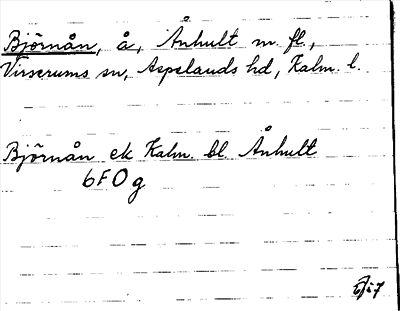 Björnån, å, Ånhult m. fl.,
Virserums sn, Aspelands hd, Kalm. l.
Björnån ek Kalm. bl. Ånhult
6F0g